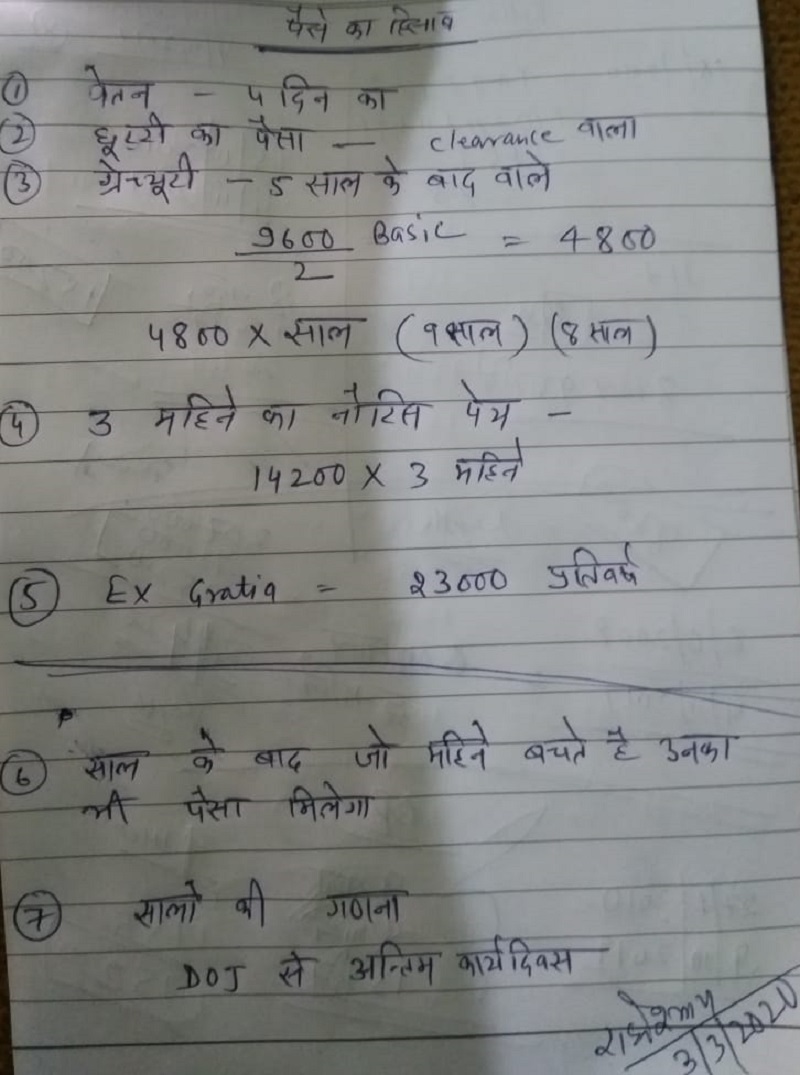 पैसे का हिसाब
① वेतन - ५ दिन का
② छूट्टी का पैसा — clearance वाला
③ ग्रेच्यूटी - 5 साल के बाद वाले
9600 Basic = 4800
2
4800 X साल (9 साल) (8 साल)
④ 3 महिने का नोटिस पेय -
14200 X 3 महिने
⑤ Ex Gratia = 23000 प्रतिवर्ष
⑥ साल के बाद जो महिने बचते है उनका
भी पैसा मिलेगा
⑦ सालो की गणना
DOJ से अन्तिम कार्यदिवस
3/3/2020